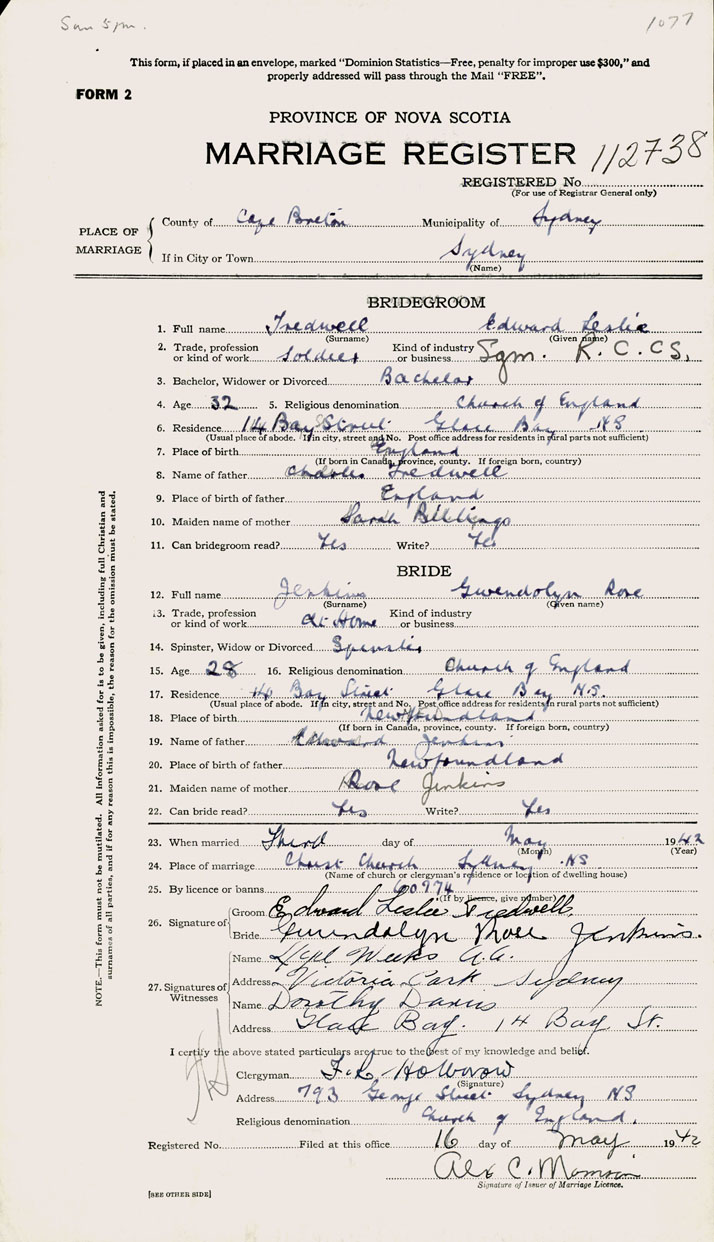 Sun 5 pm.
1077
This form, if placed in an envelope, marked "Dominion Statistics—Free, penalty for improper use $300," and
properly addressed will pass through the Mail "FREE".
FORM 2
PROVINCE OF NOVA SCOTIA
MARRIAGE REGISTER 112738
REGISTERED No
(For use of Registrar General only)
PLACE OF MARRIAGE
County of Cape Breton Municipality of Sydney
If in City or Town Sydney
(Name)
BRIDEGROOM
1. Full name Tredwell Edward Leslie
(Surname) (Given name)
2. Trade, profession or kind of work Soldier Kind of industry or business Sgm. R.C.CS.
3. Bachelor, Widower or Divorced Bachelor
4. Age 32 5. Religious denomination Church of England
6. Residence 14 Bay Street Glace Bay NS
(Usual place of abode. If in city, street and No. Post office address for residents in rural parts not sufficient)
7. Place of birth England
(If born in Canada, province, county. If foreign born, country)
8. Name of father Charles Tredwell
9. Place of birth of father England
10. Maiden name of mother Sarah Billings
11. Can bridegroom read? Yes Write? Yes
BRIDE
12. Full name Jenkins Gwendolyn Rose
(Surname) (Given name)
13. Trade, profession or kind of work At Home Kind of industry or business
14. Spinster, Widow or Divorced Spinster
15. Age 28 16. Religious denomination Church of England
17. Residence 14 Bay Street Glace Bay N.S.
(Usual place of abode. If in city, street and No. Post office address for residents in rural parts not sufficient)
18. Place of birth Newfoundland
(If born in Canada, province, county. If foreign born, country)
19. Name of father Edward Jenkins
20. Place of birth of father Newfoundland
21. Maiden name of mother Rose Jenkins
22. Can bride read? Yes Write? Yes
23. When married Third day of May 1942
(Month) (Year)
24. Place of marriage Christ Church Sydney NS
(Name of church or clergyman's residence or location of dwelling house)
25. By licence or banns 60974
(If by licence, give number)
26. Signature of
Groom Edward Leslie Tredwell.
Bride Gwendolyn Rose Jenkins.
27. Signatures of Witnesses
Name L/Cpl Weeks A.A.
Address Victoria Park Sydney
Name Dorothy Davis
Address Glace Bay. 14 Bay St.
I certify the above stated particulars are true to the best of my knowledge and belief.
Clergyman
(Signature)
Address 793 George Street Sydney NS
Religious denomination Church of England.
Registered No. Filed at this office 16 day of May 1942
Alex C.
Signature of Issuer of Marriage Licence.
[SEE OTHER SIDE]
NOTE.—This form must not be mutilated. All information asked for is to be given, including full Christian and
surnames of all parties, and if for any reason this is impossible, the reason for the omission must be stated.